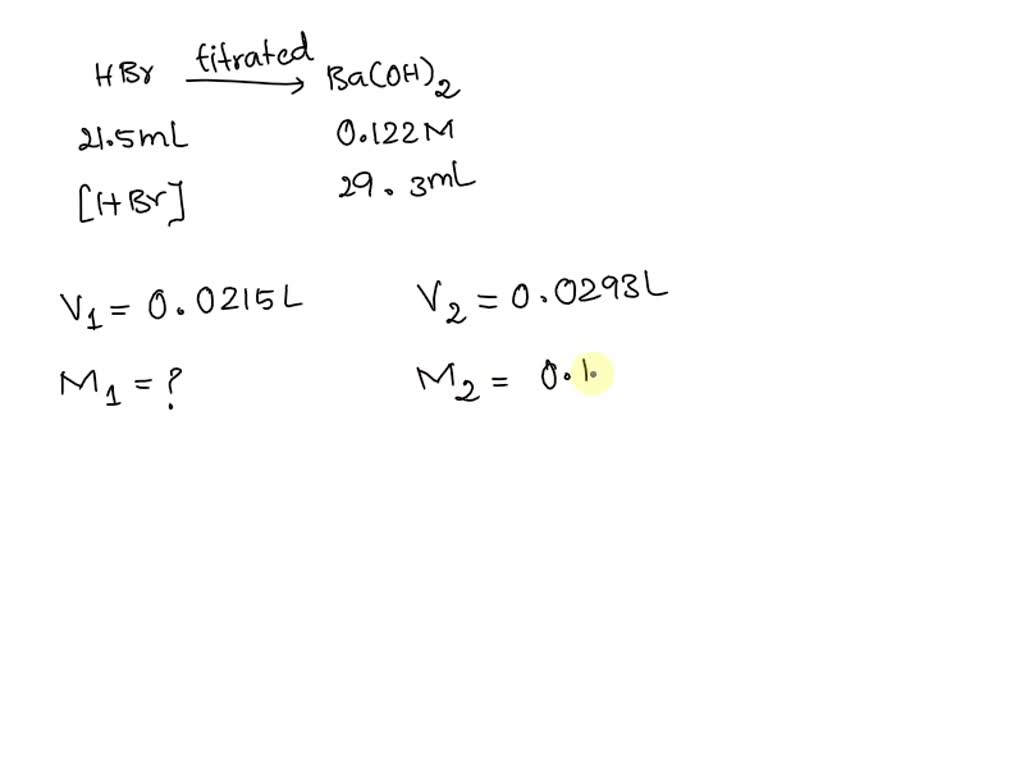 HBr titrated → Ba(OH)2
21.5mL 0.122M
[HBr] 29.3mL
V1 = 0.0215L V2 = 0.0293L
M1 = ? M2 = 0.1